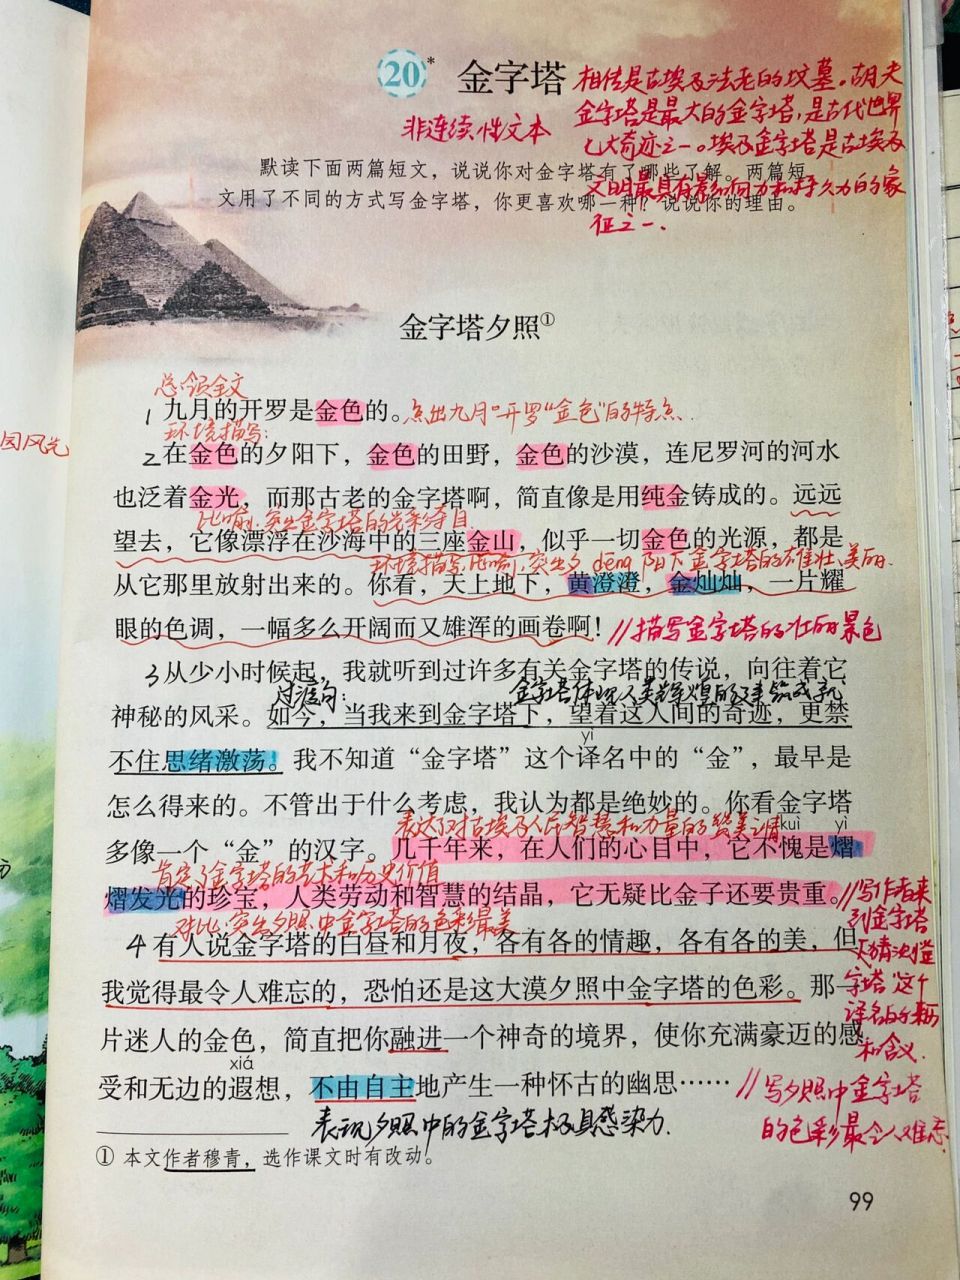 20* 金字塔
相传是古埃及法老的坟墓。胡夫
金字塔是最大的金字塔,是古代世界
七大奇迹之一。埃及金字塔是古埃及
文明最具有影响力和持久力的象
征之一.
非连续性文本
默读下面两篇短文，说说你对金字塔有了哪些了解。两篇短
文用了不同的方式写金字塔，你更喜欢哪一种？说说你的理由。
金字塔夕照①
总领全文
1 九月的开罗是金色的。点出九月“开罗“金色”的特点.
环境描写:
2 在金色的夕阳下，金色的田野，金色的沙漠，连尼罗河的河水
也泛着金光，而那古老的金字塔啊，简直像是用纯金铸成的。远远
比喻.突出金字塔的光彩夺目.
望去，它像漂浮在沙海中的三座金山，似乎一切金色的光源，都是
环境描写,比喻,突出夕阳下金字塔的雄壮、美丽.
dēng
从它那里放射出来的。你看，天上地下，黄澄澄，金灿灿，一片耀
眼的色调，一幅多么开阔而又雄浑的画卷啊！//描写金字塔的壮丽景色
3 从少小时候起，我就听到过许多有关金字塔的传说，向往着它
过渡句: 金字塔体现人类辉煌的建筑成就
神秘的风采。如今，当我来到金字塔下，望着这人间的奇迹，更禁
yì
不住思绪激荡。我不知道“金字塔”这个译名中的“金”，最早是
怎么得来的。不管出于什么考虑，我认为都是绝妙的。你看金字塔
表达了对古埃及人民智慧和力量的赞美之情
kuì yì
多像一个“金”的汉字。几千年来，在人们的心目中，它不愧是熠
肯定了金字塔的艺术和历史价值
熠发光的珍宝，人类劳动和智慧的结晶，它无疑比金子还要贵重。
//写作者来
到金字塔
字塔”这个
译名的
和含义.
对比,突出夕照中金字塔的色彩最美
4 有人说金字塔的白昼和月夜，各有各的情趣，各有各的美，但
我觉得最令人难忘的，恐怕还是这大漠夕照中金字塔的色彩。那一
片迷人的金色，简直把你融进一个神奇的境界，使你充满豪迈的感
xiá
受和无边的遐想，不由自主地产生一种怀古的幽思……
//写夕照中金字塔
的色彩最令人难忘.
表现夕照中的金字塔极具感染力.
① 本文作者穆青，选作课文时有改动。
99